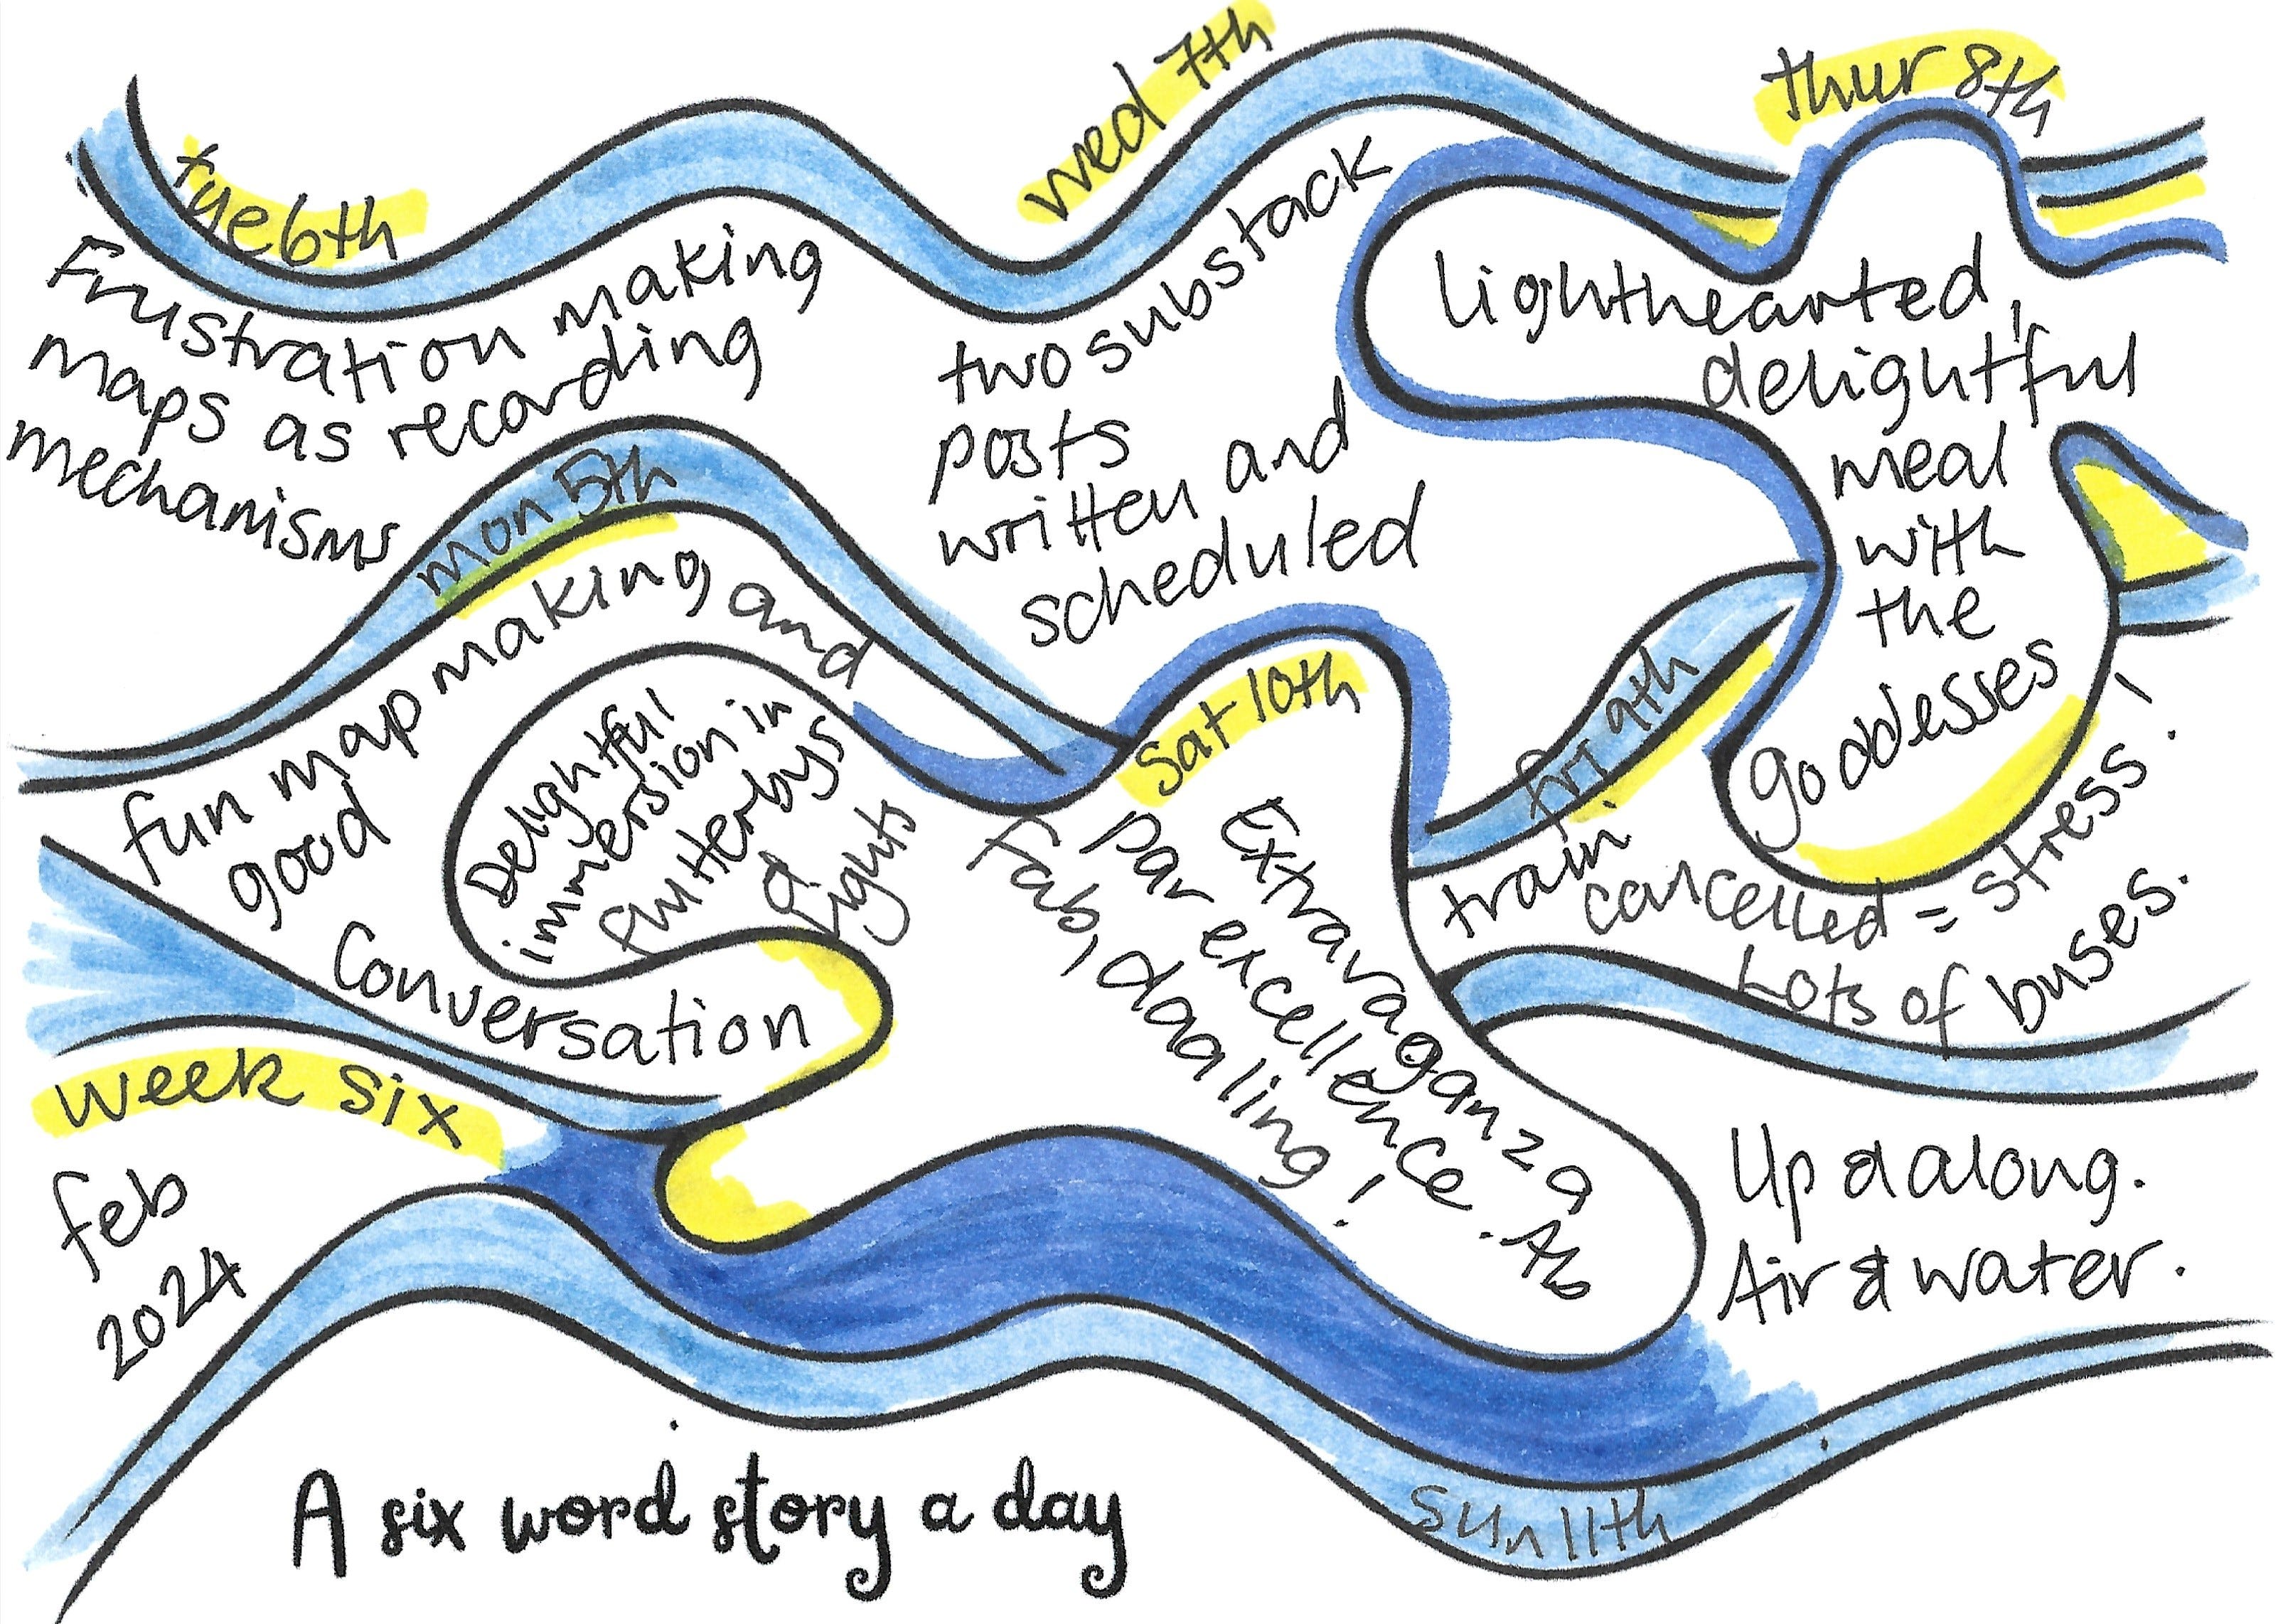 tue 6th
Frustration making
maps as recording
mechanisms
wed 7th
two substack
posts
written and
scheduled
thur 8th
lighthearted,
delightful
meal
with
the
goddesses
mon 5th
fun map making and
good
Conversation
Delightful
immersion in
flutterbys
& Lights
Sat 10th
Extravaganza
par excellence. Ab
Fab, daaling!
fri 9th
train
cancelled = stress!
Lots of buses.
week six
feb
2024
Up & along.
Air & water.
Sun 11th
A six word story a day